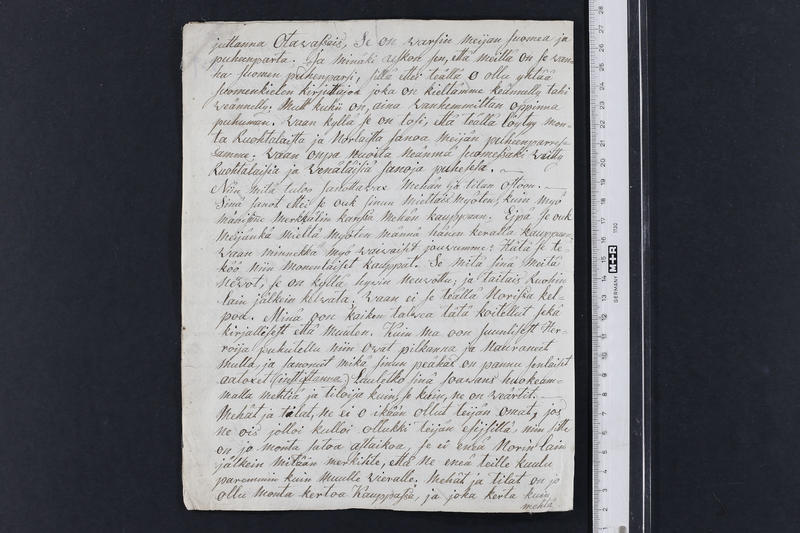 juttanna Otawaßais, Se on warsin meijan suomea ja
puhenparta. Ja minäki uskon sen, että meillä on se wan-
ha suomen puhenparsi, sillä ettei teällä o ollu yhtää
suomenkielen kirjuttajoa joka on kieltämme keännelly tahi
weännelly, Mutt kuhii on, aina wanhemmiltan oppinna
puhuman. waan kyllä se on tosi, että teällä löytyy mon-
ta Ruohtalaista ja Norlaista sanoa meijän puheenparress-
samme; waan onpa muoita neännnä Suomeßaki waikk
Ruohtalaisia ja wenäläisiä sanoja puheßsa. —
Niin mitä tulos sanottawax Mehän ja tilan ostoon. —
Sinä sanot ettei se ouk sinun mieltäis myöten, kuin myö
männimme Merkkälin kansa Mehän kauppaan. Eipä se ouk
meijänkä mieltä myöten männä hänen keralla kauppaan,
waan minnekkä myö waiwaiset jouvumme: Hätä se te-
köö niin monenlaiset kauppat. Se mitä sinä meitä
newot, se on kyllä hywin neuwottu; ja taitais Ruohin
lain jälkein kelwata; waan ei se teällä Norißa kel-
poa. Minä oon kaiken talwea tätä koitellut sekä
kirjallisest että muuten. Kuin ma oon suunlisest Her-
roija puhutellu niin ovat pilkanna ja Nauraneet
mulla, ja sanoneet mikä sinun peähäs on pannu senlaiset
aatoxet (intustanna) Luuletko sinä soawans niokeam-
malla mehtiä ja tiloija kuin, se kuin, ne on weärtit. —
Mehät ja tilat, ne ei o ikään ollut teijän omat, jos
ne ois jolloi kulloi ollukki teijän esisillä niin siitte
on jo monta satoa astaikoa, Se ei eneä Norin lain
jälkein mitään merkitite, että ne eneä teille kuulu
paremmin kuin muulle wieralle. Mehät ja tilat on jo
ollu monta kertoa Kauppaßa, ja joka kerta kuin
mehtä
28 27 26 25 24 23 22 21 20 19 18 17 16 15 14 13 12 11 10 9 8 7 6 5 4 3 2 1
GERMANY M+R 1130